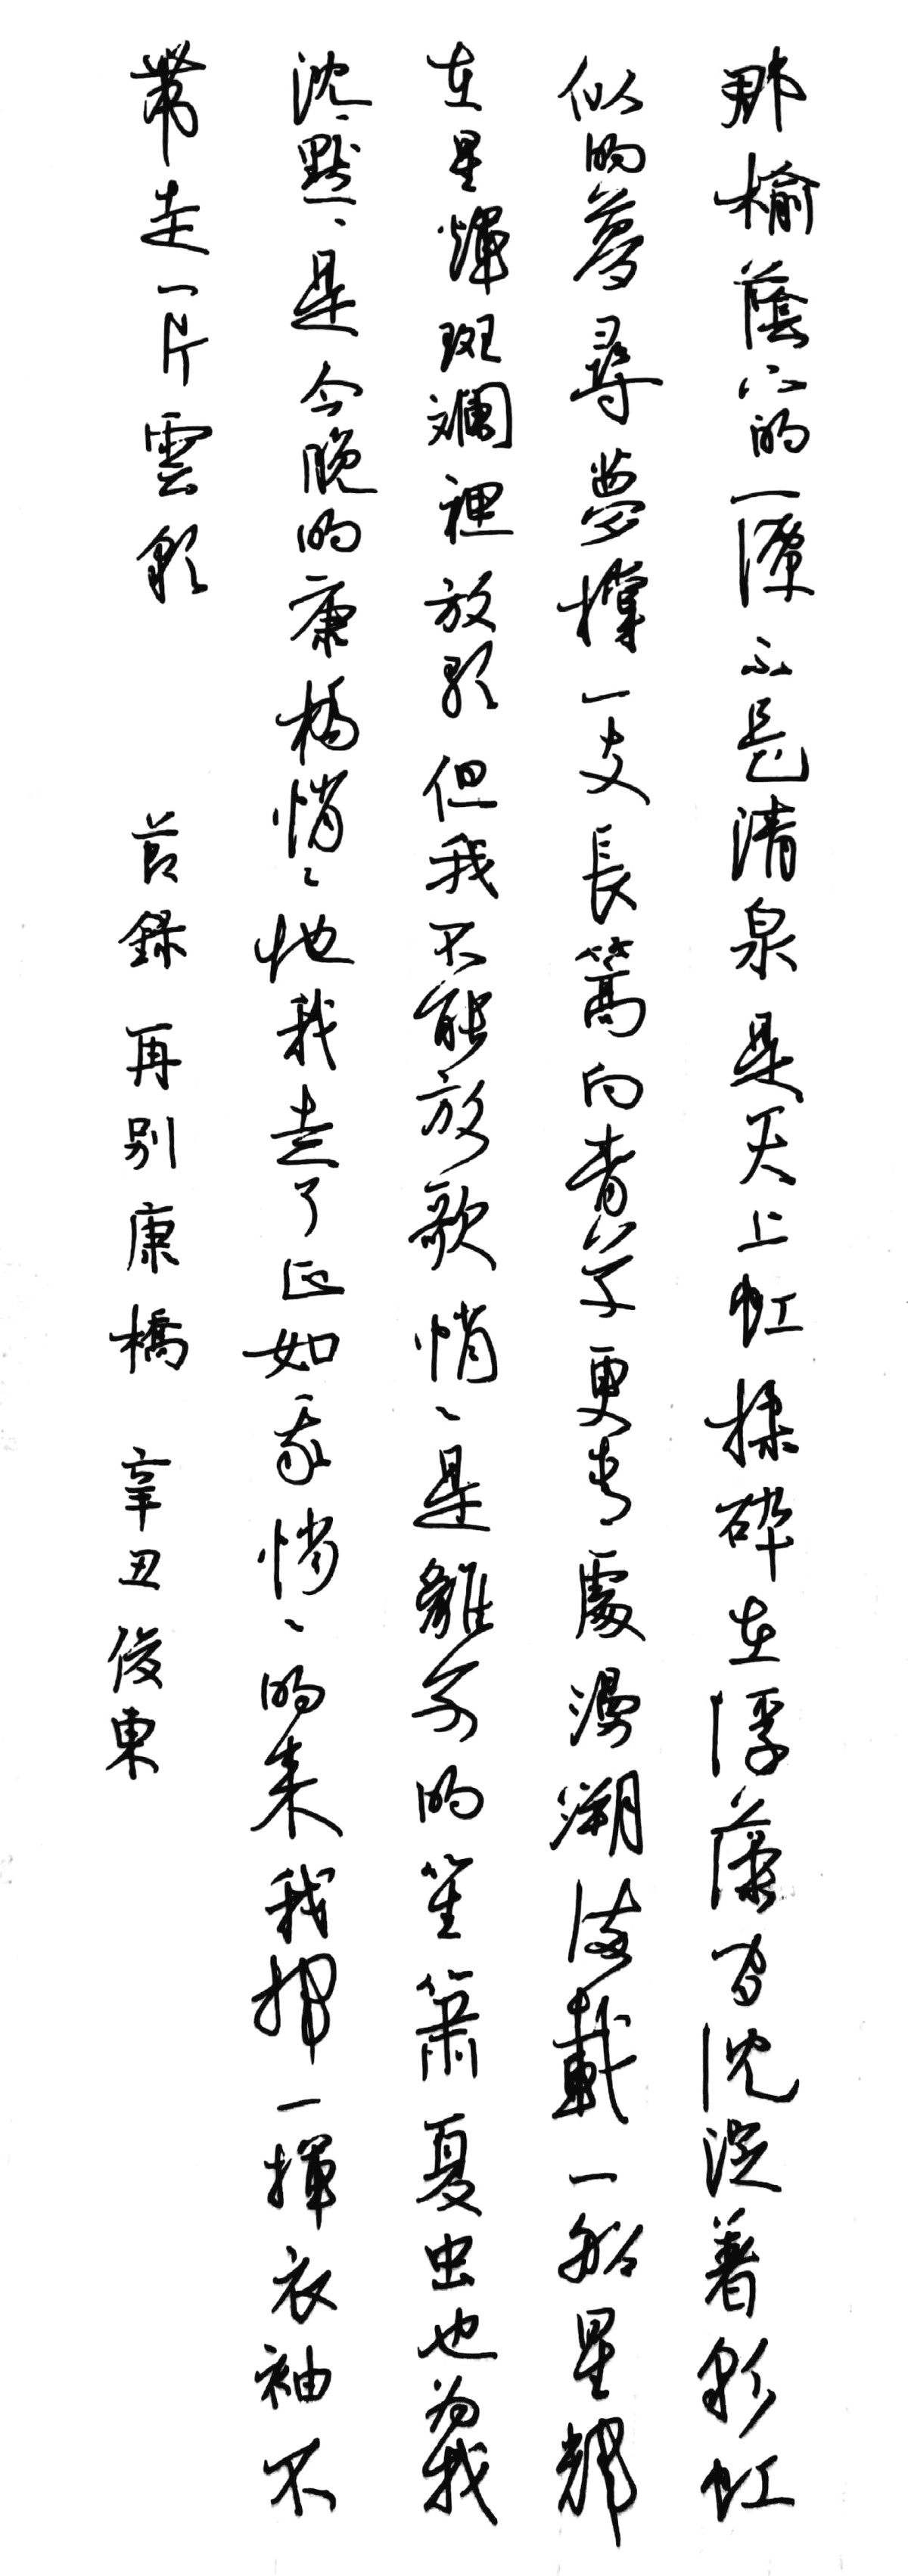 那榆蔭下的一潭不是清泉是天上虹揉碎在浮藻間沈淀著彩虹
似的夢尋夢撐一支長篙向青草更青處漫溯滿載一船星輝
在星輝斑斕裡放歌但我不能放歌悄〻是離別的笙簫夏虫也為我
沈默〻是今晚的康橋悄〻地我走了正如我悄〻的来我揮一揮衣袖不
帶走一片雲彩 节錄再别康橋 辛丑俊東